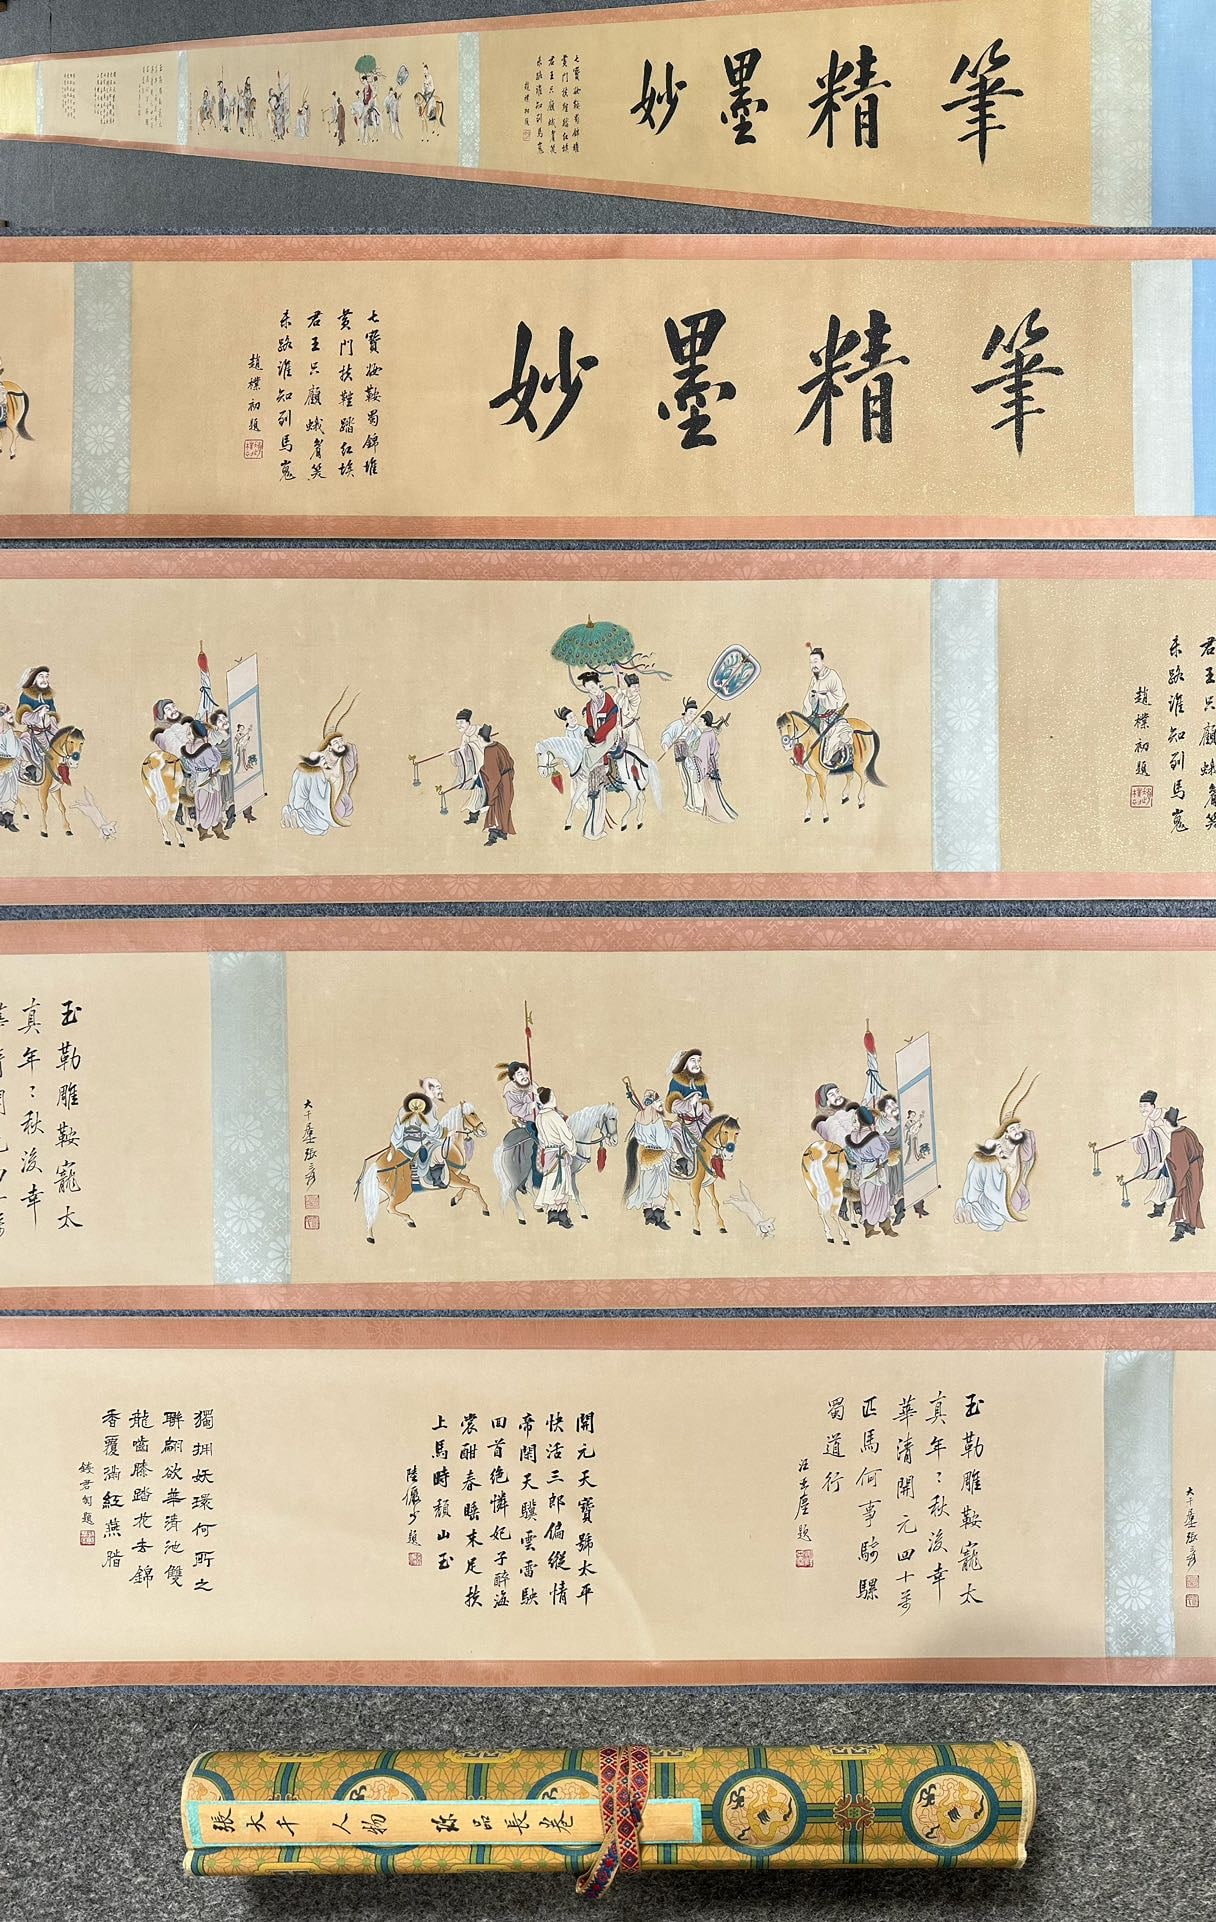 筆精墨妙
七寶妝鞍蜀錦堆
黃門扶鞚踏紅埃
君王只顧蛾眉笑
末路誰知到馬嵬
趙樸初題
筆精墨妙
七寶妝鞍蜀錦堆
黃門扶鞚踏紅埃
君王只顧蛾眉笑
末路誰知到馬嵬
趙樸初題
君王只顧蛾眉笑
末路誰知到馬嵬
趙樸初題
大千張爰
玉勒雕鞍寵太
真年〻秋後幸
大千張爰
玉勒雕鞍寵太
真年〻秋後幸
華清開元四十萬
匹馬何事騎騾
蜀道行
開元天寶號太平
快活三郎偏縱情
帝閑天驥雲雷駛
回首絕憐妃子醉海
棠酣春睡未足扶
上馬時頹山玉
陸儼少題
獨擁妖環何所之
聯翩欲華清池雙
龍嚙膝踏花去錦
香覆滿紅燕脂
錢君匋題
張大千 人物 珎品長卷